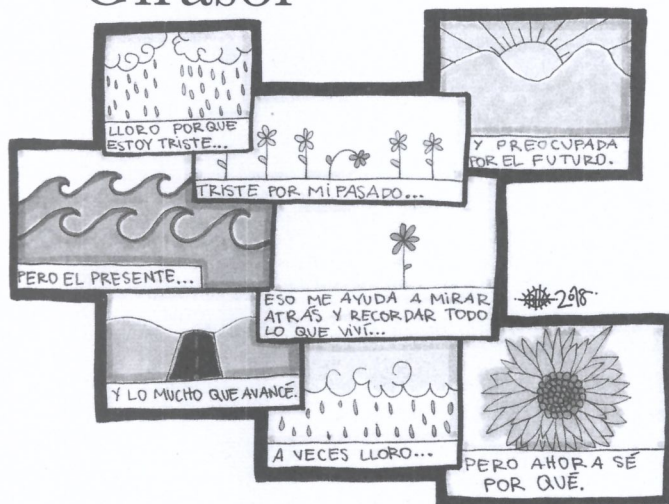 Girasol
LLORO PORQUE
ESTOY TRISTE...
TRISTE POR MI PASADO...
Y PREOCUPADA
POR EL FUTURO.
PERO EL PRESENTE...
ESO ME AYUDA A MIRAR
ATRÁS Y RECORDAR TODO
LO QUE VIVÍ...
2018
Y LO MUCHO QUE AVANCÉ.
A VECES LLORO...
PERO AHORA SÉ
POR QUÉ.